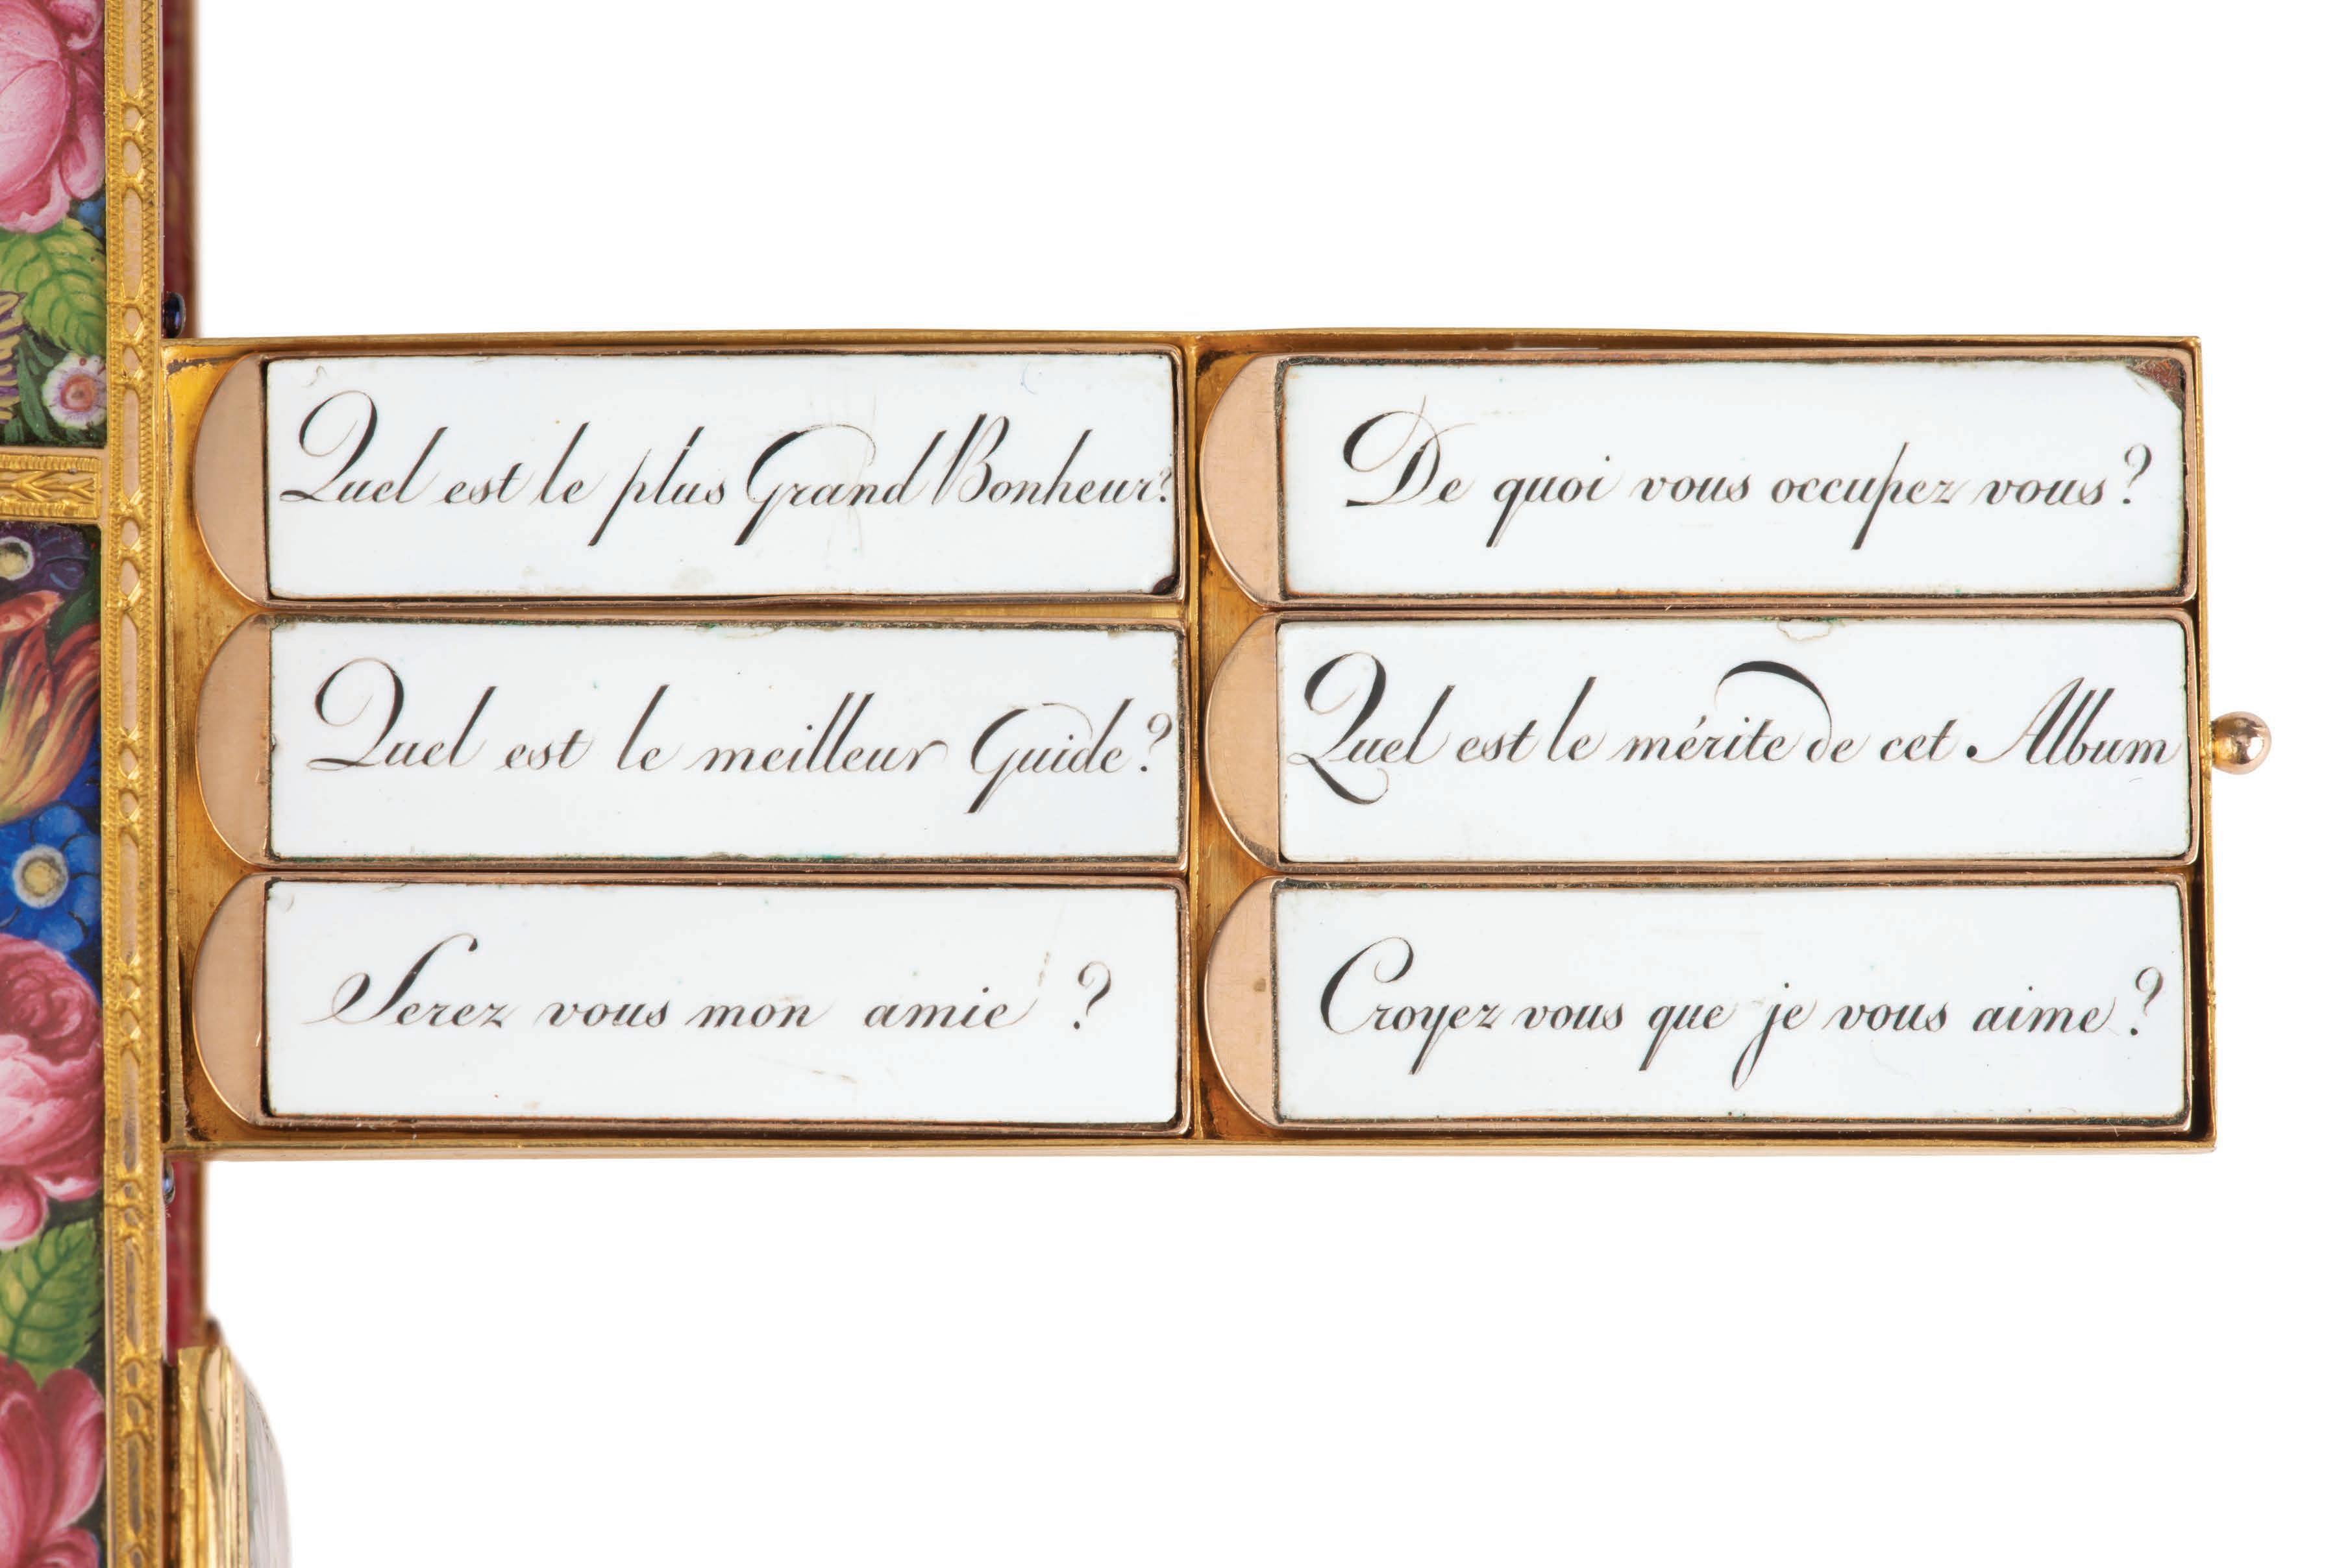 Quel est le plus Grand Bonheur?
De quoi vous occupez vous?
Quel est le meilleur Guide?
Quel est le mérite de cet Album
Serez vous mon amie ?
Croyez vous que je vous aime?